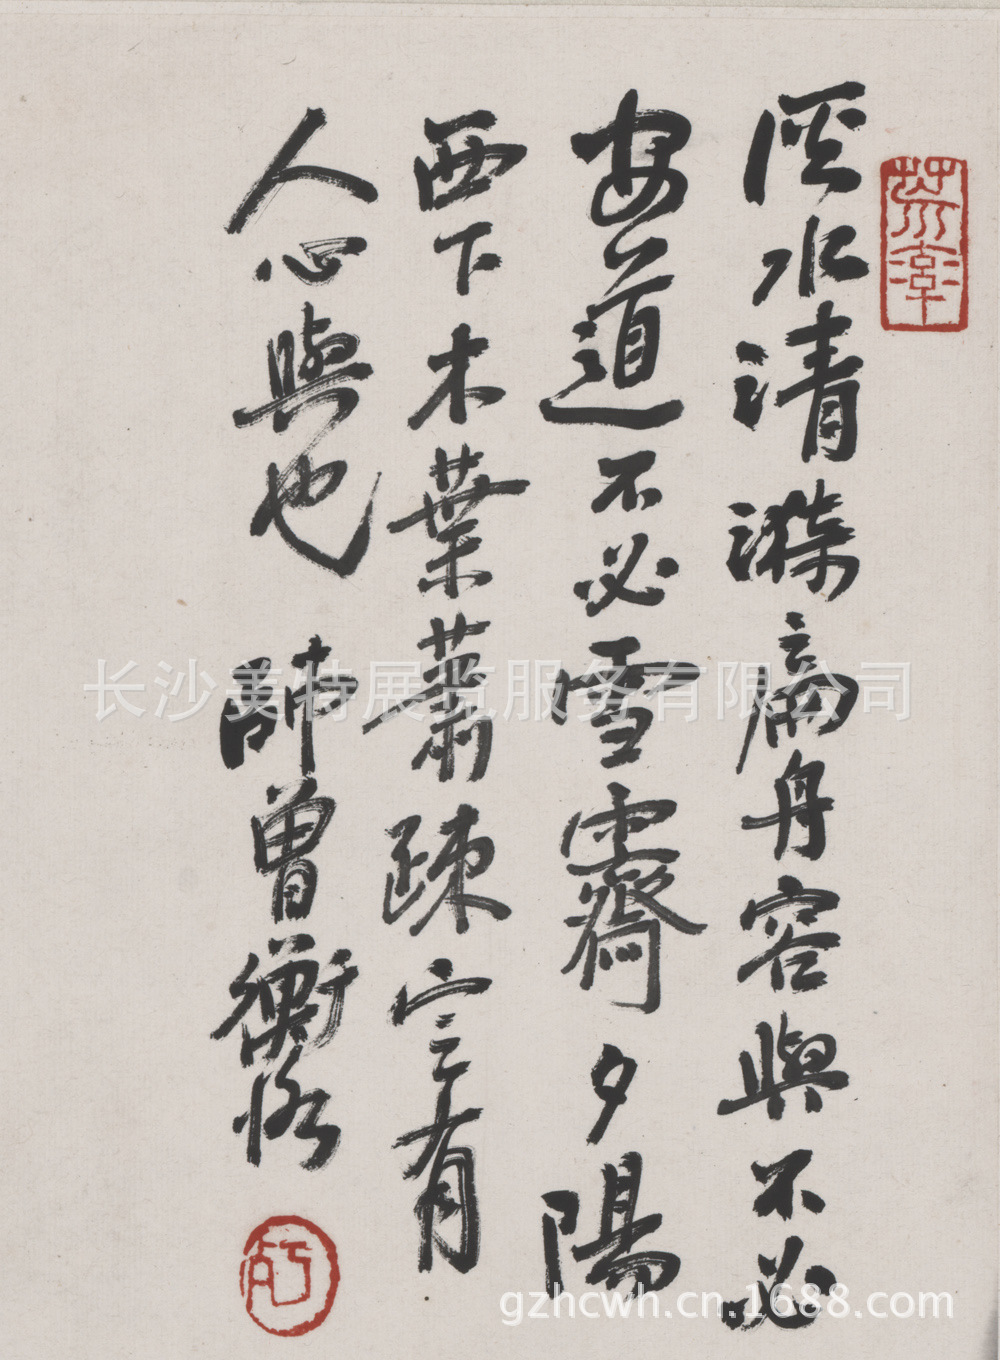 水清漾扁舟容與不必
安道不必雪霽夕陽
西下木葉蕭疎有
人心與也 師曾衡恪
长沙美特展览服务有限公司
gzhcwh.cn.1688.com